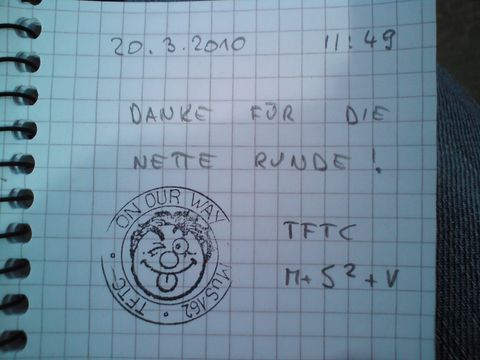 20.3.2010 11:49
DANKE FÜR DIE
NETTE RUNDE!
TFTC
M+S²+V
ON OUR WAY
MUS162
TFTC